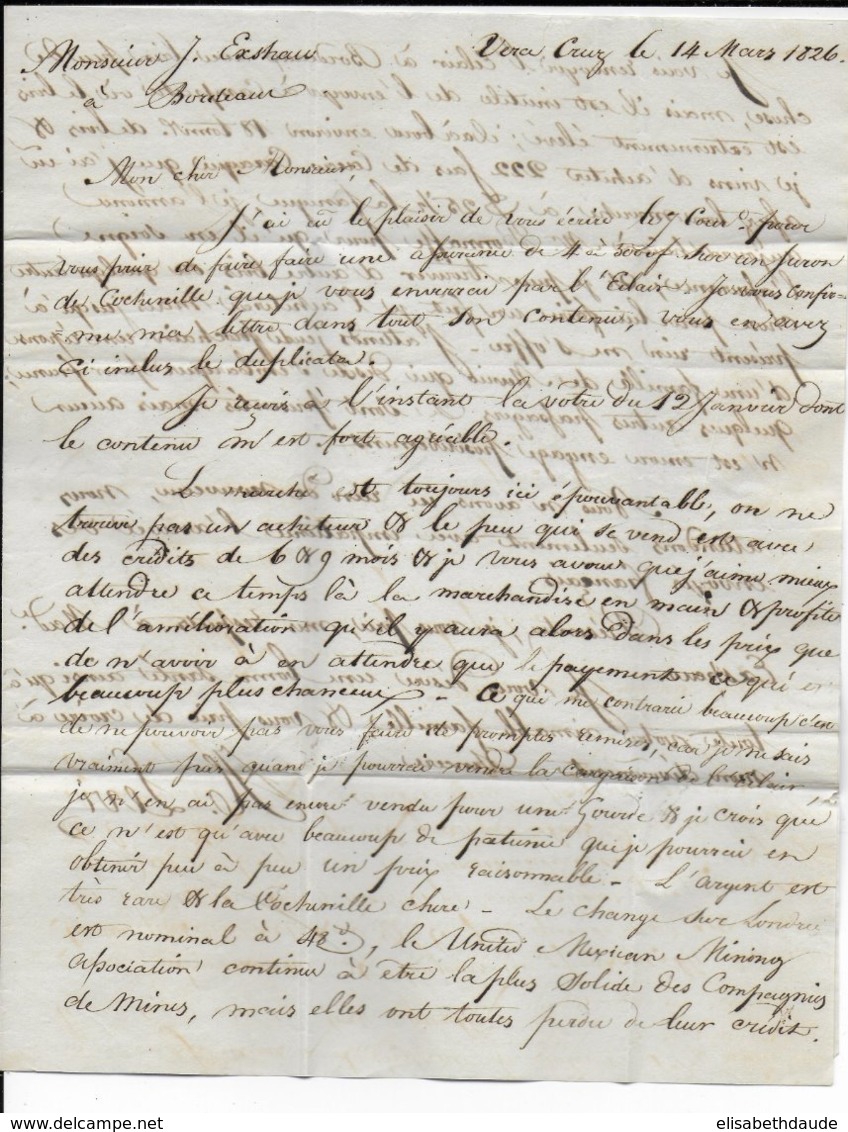 Vera Cruz le 14 Mars 1826.
Monsieur J. Exshaw
à Bordeaux
Mon cher Monsieur,
J'ai eu le plaisir de vous écrire le 7 Cour.t pour
vous prier de faire faire une assurance de 4 à 5000f sur un suron
de Cochenille que je vous enverrai par l'Eclair. Je vous confir=
me ma lettre dans tout son contenu, vous en avez
ci inclus le duplicata.
Je reçois a l'instant la vôtre du 12 Janvier dont
le contenu m'est fort agréable.
Le marché est toujours ici épouvantable, on ne
trouve pas un acheteur & le peu qui se vend est avec
des crédits de 6 & 9 mois & je vous avoue que j'aime mieux
attendre ce temps là la marchandise en main & profiter
de l'amélioration qu'il y aura alors dans les prix que
de n'avoir à en attendre que le payement ce qui est
beaucoup plus chanceux - Ce qui me contrarie beaucoup c'est
de ne pouvoir pas vous faire de promptes remises, car je ne sais
vraiment pas quand je pourrai vendre la Cargaison de l'Eclair
je n'en ai pas encore vendu pour une Gourde & je crois que
ce n'est qu'avec beaucoup de patience que je pourrai en
obtenir peu à peu un prix raisonnable - L'argent est
très rare & la Cochenille chere - Le change sur Londres
est nominal à 48d, le United Mexican Mining
association continue à être la plus solide des Compagnies
de Mines, mais elles ont toutes perdu de leur crédit.
elisabethdaude